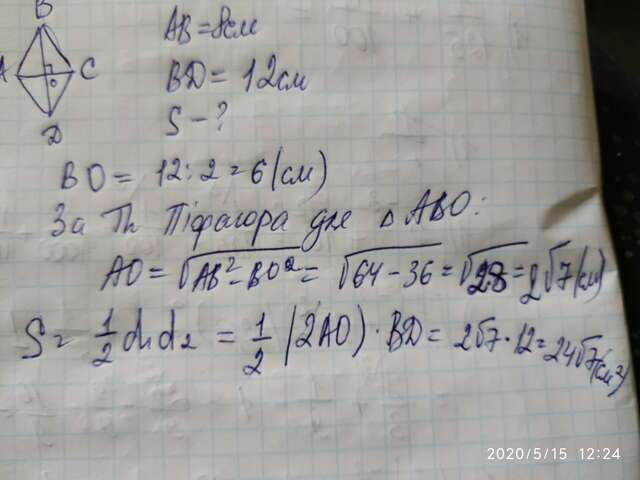 B
AB=8см
A
C
BD=12см
O
D
S-?
BO= 12:2=6(см)
За Th Піфагора для △ABO:
AO=√AB²-BO²=√64-36=√28=2√7(см)
S=1/2d₁d₂=1/2(2AO)·BD=2√7·12=24√7(см²)
2020/5/15 12:24